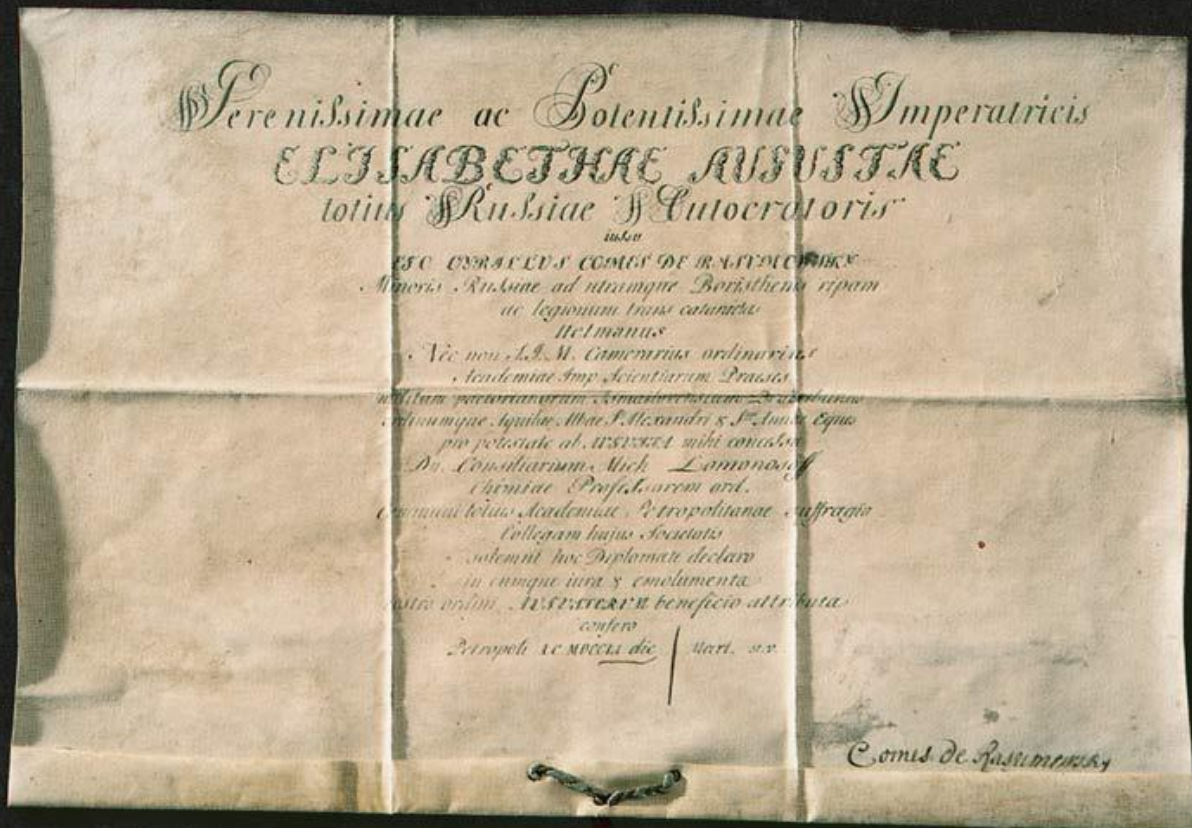 Serenissimae ac Potentissimae Imperatricis
ELISABETHAE AUGUSTAE
totius Russiae Autocratoris
iussu
EGO CYRILLUS COMES DE RASUMOWSKY
Minoris Russiae ad utramque Boristhenis ripam
ac legionum trans catarractas
Hetmanus
Nec non S.I.M. Camerarius ordinarius
Academiae Imp Scientiarum Praeses
Ordinumque Aquilae Albae S Alexandri & S Annae Eques
pro potestate ab AUGUSTA mihi concessa
Dn. Consiliarium Mich Lomonosoff
Chimiae Professorem ord.
communi totius Academiae Petropolitanae suffragio
Collegam hujus Societatis
solemni hoc Diplomate declaro
in eumque iura & emolumenta
nostro ordini AUGUSTORUM beneficio attributa
confero
Petropoli MDCCLI die | Mart.
Comes de Rasumowsky